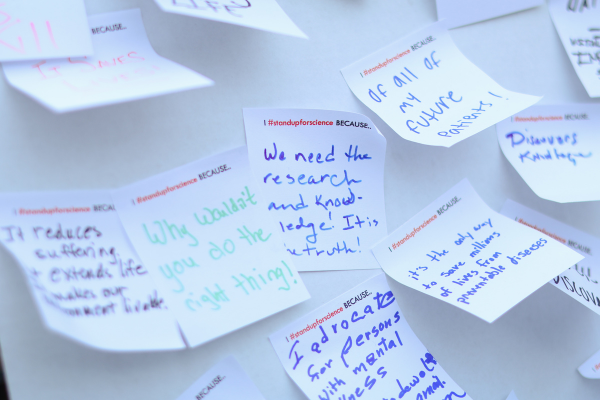 BECAUSE..
It saves
I #standupforscience BECAUSE..
of all of
my
future
patients!
I #standupforscience BECAUSE..
We need the
research
and know-
ledge! It is
truth!
#standupforscience BECAUSE..
Discovers
Knowledge
I #standupforscience BECA
It reduces
suffering
extends life
makes our
I #standupforscience BECAUSE..
Why wouldn't
you do the
right thing!
I #standupforscience BECAUSE..
it's the only way
to save millions
of lives from
preventable diseases
I #standupforscience BECAUSE..
I advocate
for persons
with mental
BECAUSE..